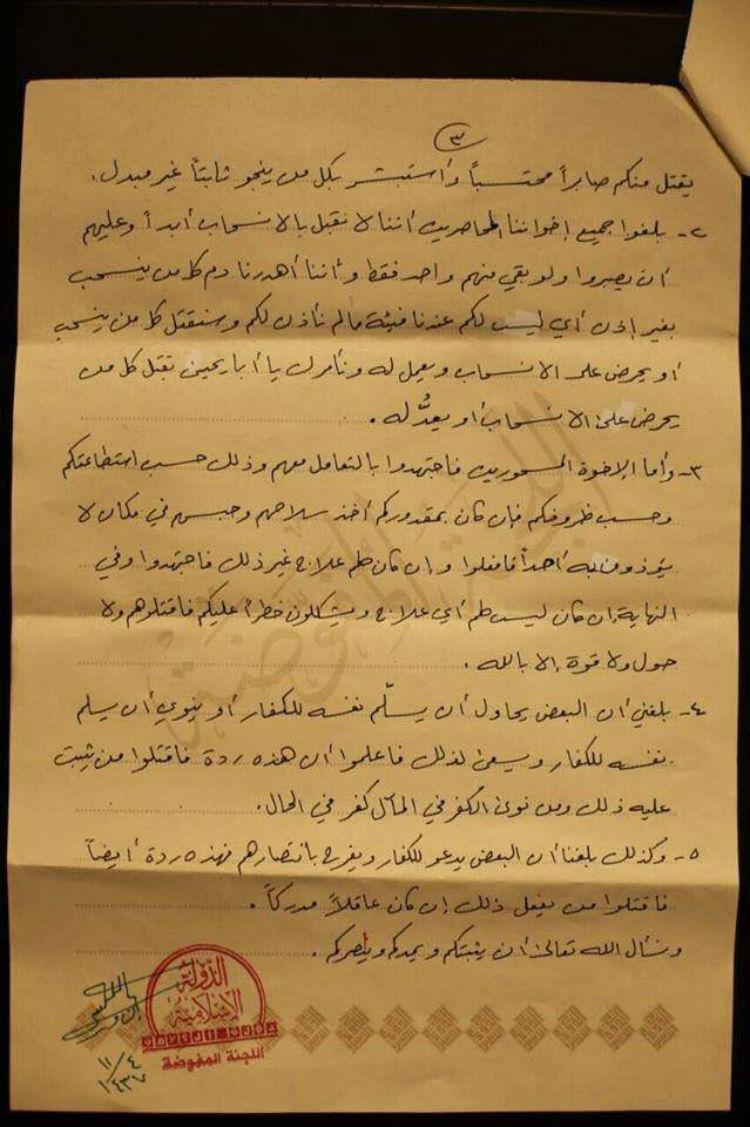 ٣
يقتل منكم صابراً محتسباً وأستبشر بكل من ينجو ثابتاً غير مبدل.
٢- بلغوا جميع إخواننا المحاصرين أننا لا نقبل بالانسحاب أبداً وعليهم
أن يصبروا ولو بقي منهم واحد فقط وأننا أهدرنا دم كل من ينسحب
بغير إذن أي ليست لكم عندنا فيئة مالم نأذن لكم وسنقتل كل من ينسحب
أو يحرض على الانسحاب ويعمل له ونأمرك يا أبا يحيى بقتل كل من
يحرض على الانسحاب أو يعدُّ له.
٣- وأما الإخوة المسحورين فاجتهدوا بالتعامل معهم وذلك حسب استطاعتكم
وحسب ظروفكم فإن كان بمقدوركم أخذ سلاحهم وحبسهم في مكان لا
يؤذون به أحداً فافعلوا وإن كان لهم علاج غير ذلك فاجتهدوا وفي
النهاية إن كان ليست لهم أي علاج ويشكلون خطراً عليكم فاقتلوهم ولا
حول ولا قوة إلا بالله.
٤- بلغني أن البعض يحاول أن يسلّم نفسه للكفار أو ينوي أن يسلم
نفسه للكفار ويسعى لذلك فاعلموا أن هذه ردة فاقتلوا من يثبت
عليه ذلك ومن نوى الكفر في المآل كفر في الحال.
٥- وكذلك بلغنا أن البعض يدعو للكفار ويفرح بانتصارهم فهذه ردة أيضاً
فاقتلوا من يفعل ذلك إن كان عاقلاً مدركاً.
ونسأل الله تعالى أن يثبتكم ويمدكم وينصركم.
الدولة
الإسلامية
اللجنة المفوضة
٤/١١
١٤٣٧
اللجنة المفوضة